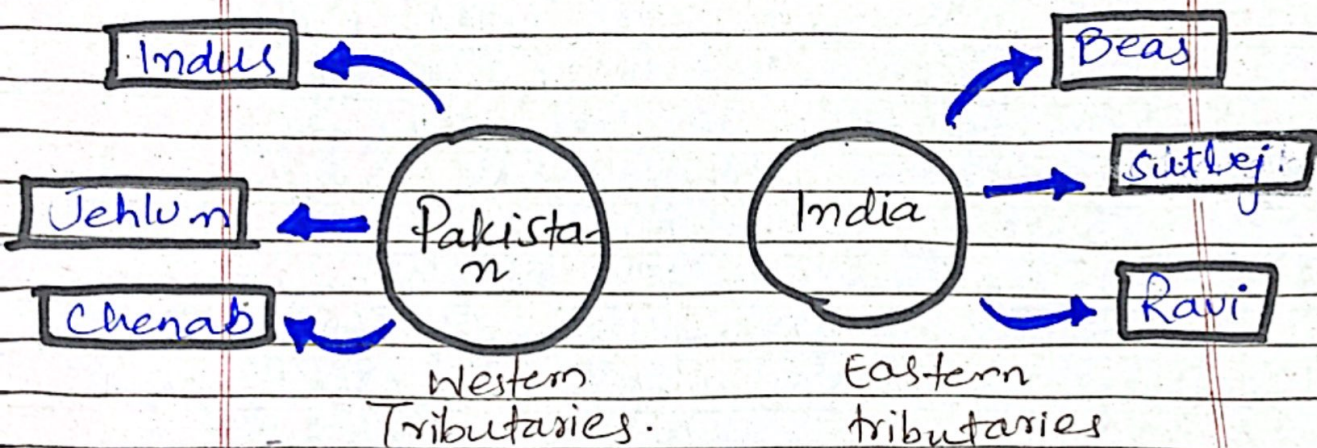 Indus
Jehlum
Chenab
Pakista-
n
Western
Tributaries.
Beas
Sutlej.
India
Ravi
Eastern
tributaries